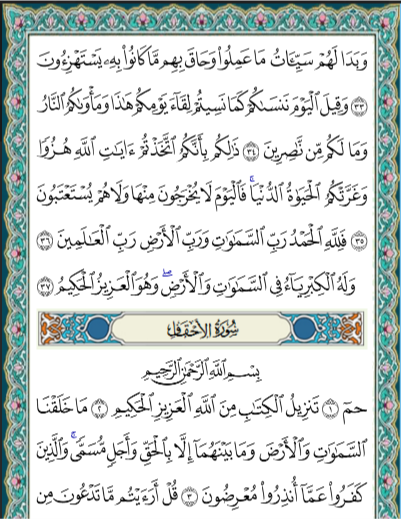 وَبَدَا لَهُمْ سَيِّـَٔاتُ مَا عَمِلُوا۟ وَحَاقَ بِهِم مَّا كَانُوا۟ بِهِۦ يَسْتَهْزِءُونَ
٣٣ وَقِيلَ ٱلْيَوْمَ نَنسَىٰكُمْ كَمَا نَسِيتُمْ لِقَآءَ يَوْمِكُمْ هَٰذَا وَمَأْوَىٰكُمُ ٱلنَّارُ
وَمَا لَكُم مِّن نَّٰصِرِينَ ٣٤ ذَٰلِكُم بِأَنَّكُمُ ٱتَّخَذْتُمْ ءَايَٰتِ ٱللَّهِ هُزُوًا
وَغَرَّتْكُمُ ٱلْحَيَوٰةُ ٱلدُّنْيَا ۚ فَٱلْيَوْمَ لَا يُخْرَجُونَ مِنْهَا وَلَا هُمْ يُسْتَعْتَبُونَ
٣٥ فَلِلَّهِ ٱلْحَمْدُ رَبِّ ٱلسَّمَٰوَٰتِ وَرَبِّ ٱلْأَرْضِ رَبِّ ٱلْعَٰلَمِينَ ٣٦
وَلَهُ ٱلْكِبْرِيَآءُ فِى ٱلسَّمَٰوَٰتِ وَٱلْأَرْضِ ۖ وَهُوَ ٱلْعَزِيزُ ٱلْحَكِيمُ ٣٧
سُورَةُ الأَحْقَافِ
بِسْمِ ٱللَّهِ ٱلرَّحْمَٰنِ ٱلرَّحِيمِ
حمٓ ١ تَنزِيلُ ٱلْكِتَٰبِ مِنَ ٱللَّهِ ٱلْعَزِيزِ ٱلْحَكِيمِ ٢ مَا خَلَقْنَا
ٱلسَّمَٰوَٰتِ وَٱلْأَرْضَ وَمَا بَيْنَهُمَآ إِلَّا بِٱلْحَقِّ وَأَجَلٍ مُّسَمًّى ۚ وَٱلَّذِينَ
كَفَرُوا۟ عَمَّآ أُنذِرُوا۟ مُعْرِضُونَ ٣ قُلْ أَرَءَيْتُم مَّا تَدْعُونَ مِن